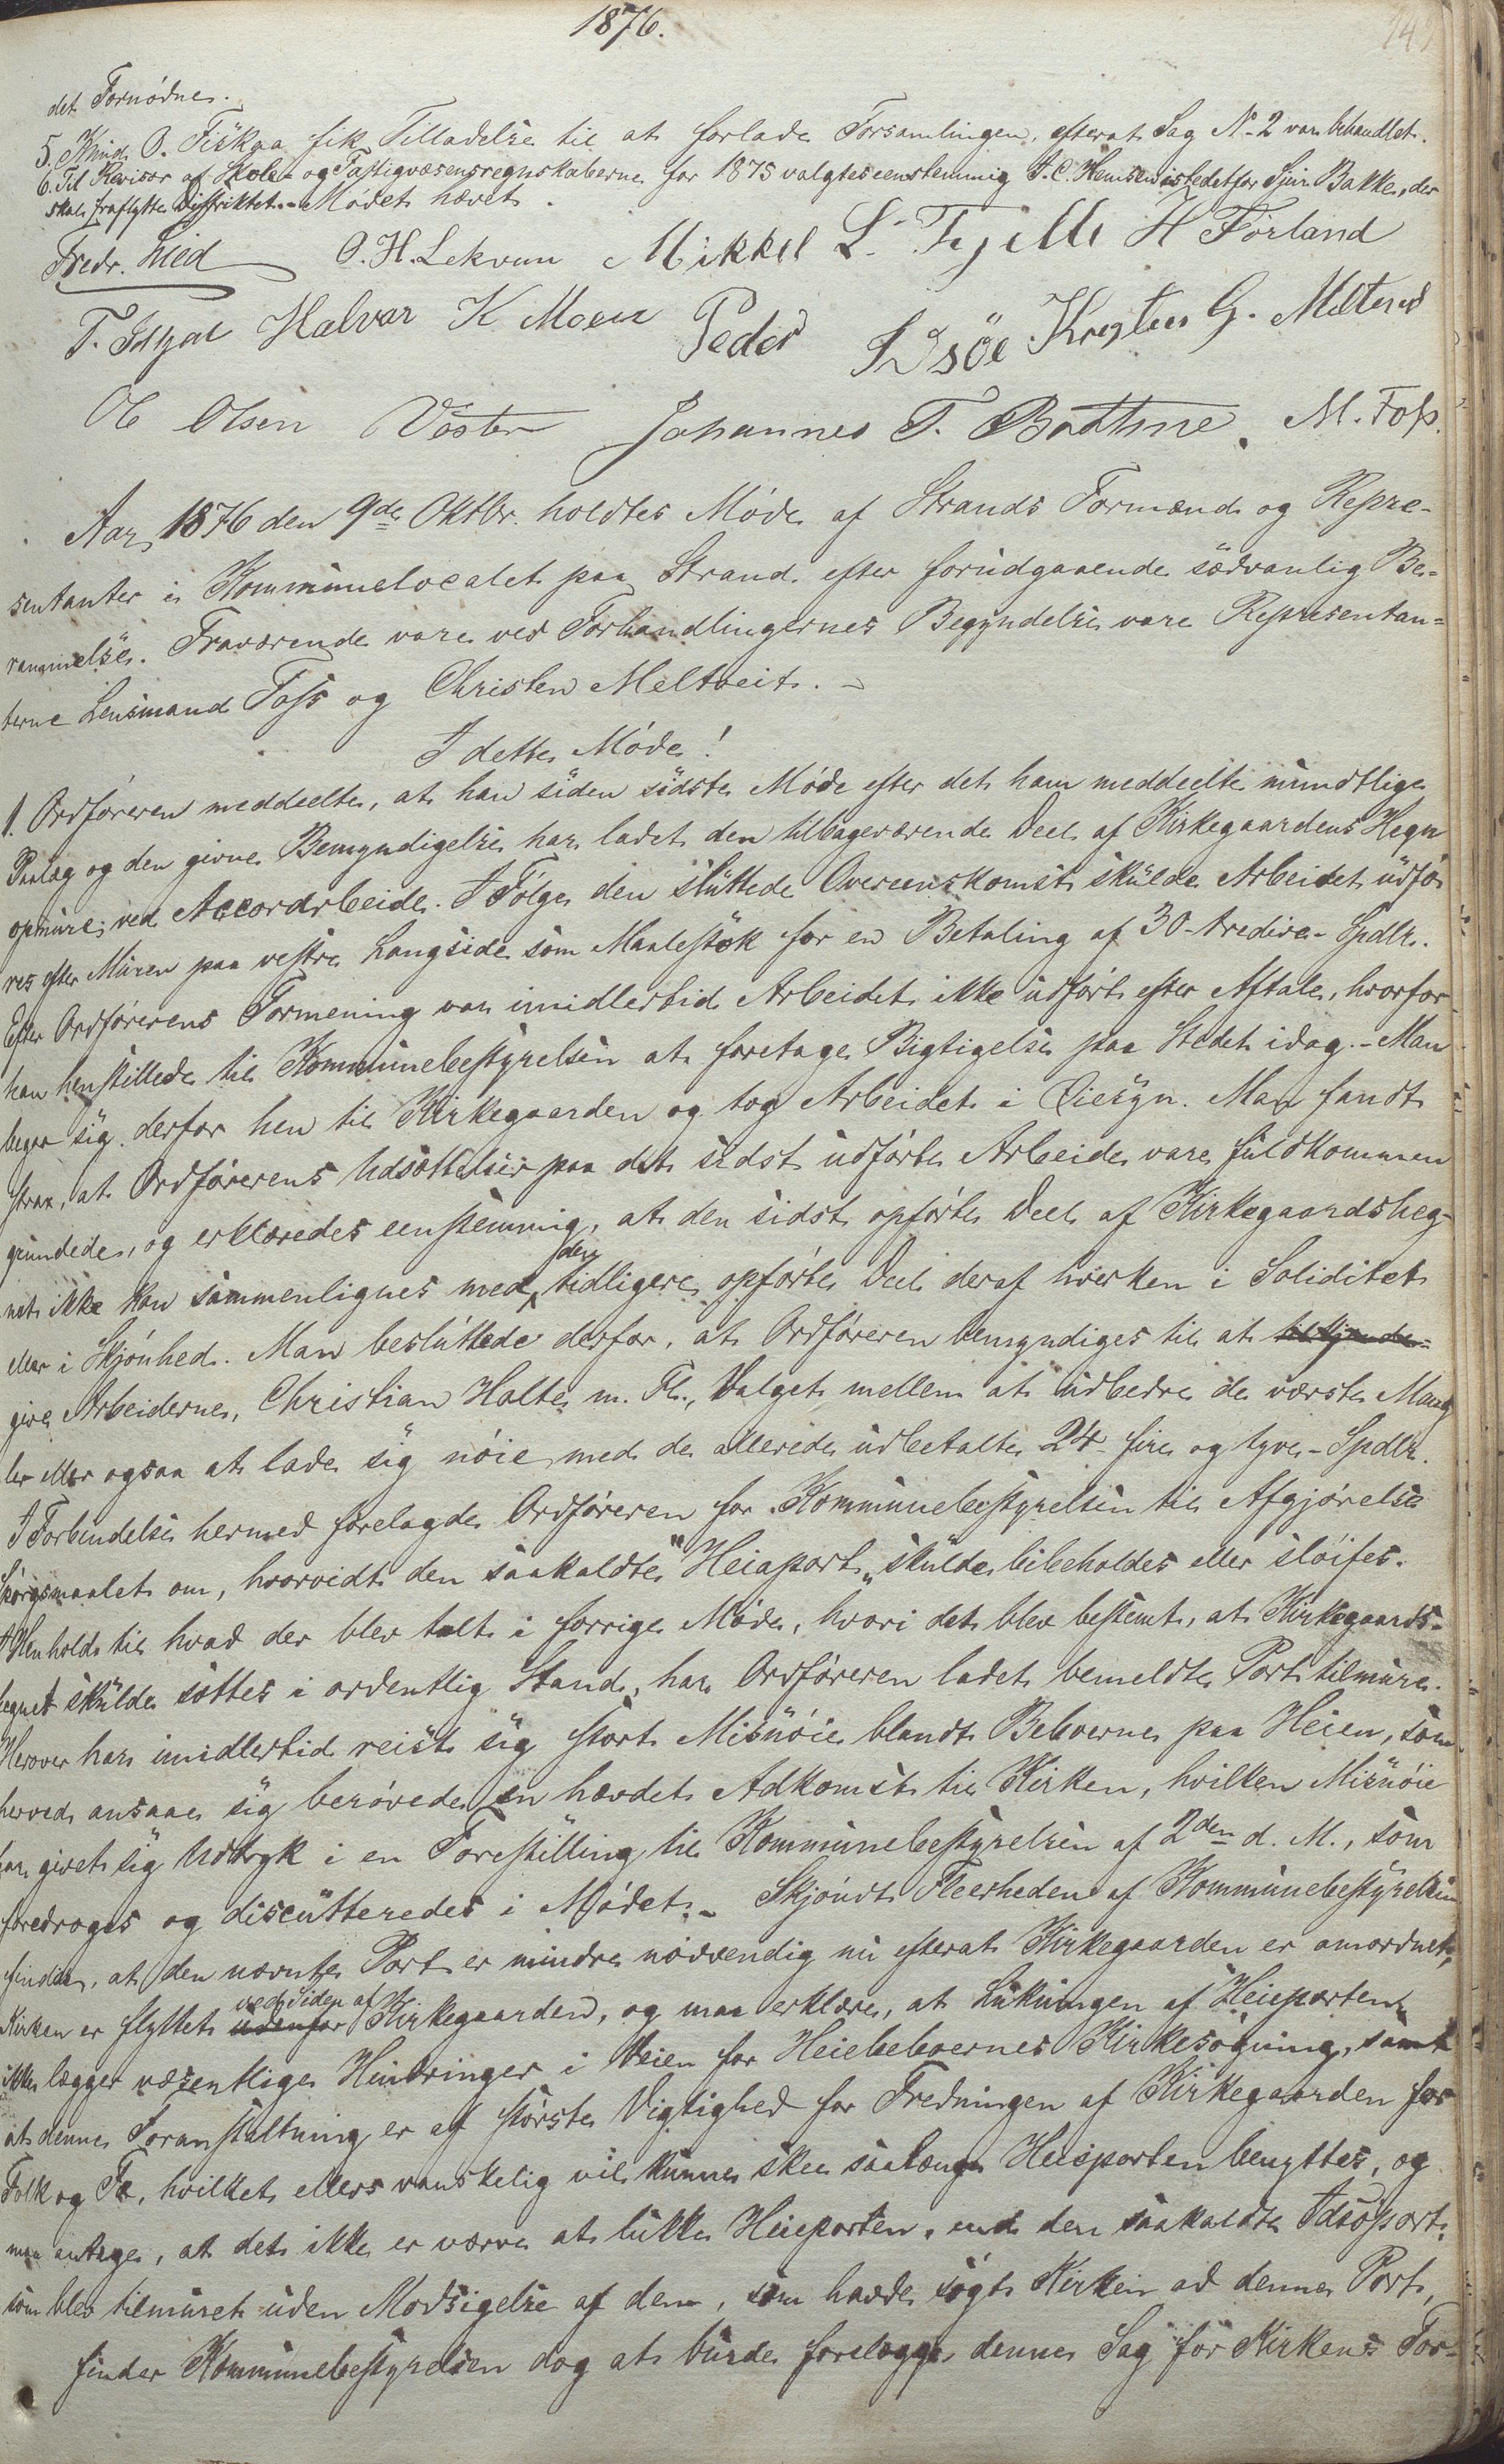 1876.
det Fornødne.
5. Knud O. Fiskaa fik Tilladelse til at forlade Forsamlingen, efterat Sag N. 2 var behandlet.
6. Til Revisor af Skole- og Fattigvæsensregnskaberne for 1875 valgtes eenstemmig istedetfor Bakke, der
skal fraflytte Distriktet. - Mødet hævet.
Fredr. Lied O. H. Lekvam Mikkel L. Fjelde H Førland
T. Halvar K Moen Peder Idsöe G.
Ole Olsen Johannes T. M. Foss.
Aar 1876 den 9de Oktbr. holdtes Møde af Strands Formænd og Repre-
sentanter i Kommunelocalet paa Strand efter forudgaaende sædvanlig Be-
rammelse. Fraværende vare ved Forhandlingernes Begyndelse vare Representan-
terne Lensmand Foss og Christen Meltveit. -
I dette Møde!
1. Ordføreren meddeelte, at han siden sidste Møde efter det ham meddeelte mundtlige
Paalæg og den givne Bemyndigelse har ladet den tilbageværende Deel af Kirkegaardens Hegn
opmure ved Accordarbeide. I Følge den sluttede Overeenskomst skulde Arbeidet udfø-
res efter Muren paa vestre Langside som Maalestok for en Betaling af 30 - tredive - Spdlr.
Efter Ordførerens Formening var imidlertid Arbeidet ikke udført efter Aftale, hvorfor
han henstillede til Kommunebestyrelsen at foretage Bigtigelse paa Stedet idag. - Man
begav sig derfor hen til Kirkegaarden og tog Arbeidet i Øiesyn. Man fandt
strax, at Ordførerens Udsættelser paa det sidst udførte Arbeide vare fuldkommen
grundede, og erklæredes eenstemmig, at den sidst opførte Deel af Kirkegaardsheg-
net ikke kan sammenlignes med den tidligere opførte Deel deraf hverken i Soliditet
eller i Skjønhed. Man besluttede derfor, at Ordføreren bemyndiges til at
give Arbeiderne, Christian Holte m. Fl., Valget mellem at udbedre de værste Mang
ler eller ogsaa at lade sig nøie med de allerede udbetalte 24 - fire og tyve - Spdlr.
I Forbindelse hermed forelagde Ordføreren for Kommunebestyrelsen til Afgjørelse
Spørgsmaalet om, hvorvidt den saakaldte "Heiaport" skulde bibeholdes eller sløifes.
I Henhold til hvad der blev talt i forrige Møde, hvori det blev bestemt, at Kirkegaards-
hegnet skulde sættes i ordentlig Stand, har Ordføreren ladet bemeldte Port tilmure.
Herover har imidlertid reist sig stort Misnøie blandt Beboerne paa Heien, som
herved ansaae sig berøvede en hævdet Adkomst til Kirken, hvilken Misnøie
har givet sig Udtryk i en Forestilling til Kommunebestyrelsen af 2den d. M., som
foredroges og discutteredes i Mødet. - Skjøndt Fleerheden af Kommunebestyrelsen
finder, at den nævnte Port er mindre nødvendig nu efterat Kirkegaarden er anordnet,
Kirken er flyttet udenfor ved Siden af Kirkegaarden, og maa erklære, at Lukningen af Heieporten
ikke lægger væsentlige Hindringer i Veien for Heiebeboernes Kirkesøgning, samt
at denne Foranstaltning er af største Vigtighed for Fredningen af Kirkegaarden for
Folk og Fæ, hvilket ellers vanskelig vil kunne skee saalænge Heieporten benyttes, og
maa antage, at det ikke er værre at lukke Heieporten, end den saakaldte Idsöport,
som blev tilmuret uden Modsigelse af dem, som havde søgt Kirken ad denne Port,
finder Kommunebestyrelsen dog at burde forelægge denne Sag for Kirkens For-